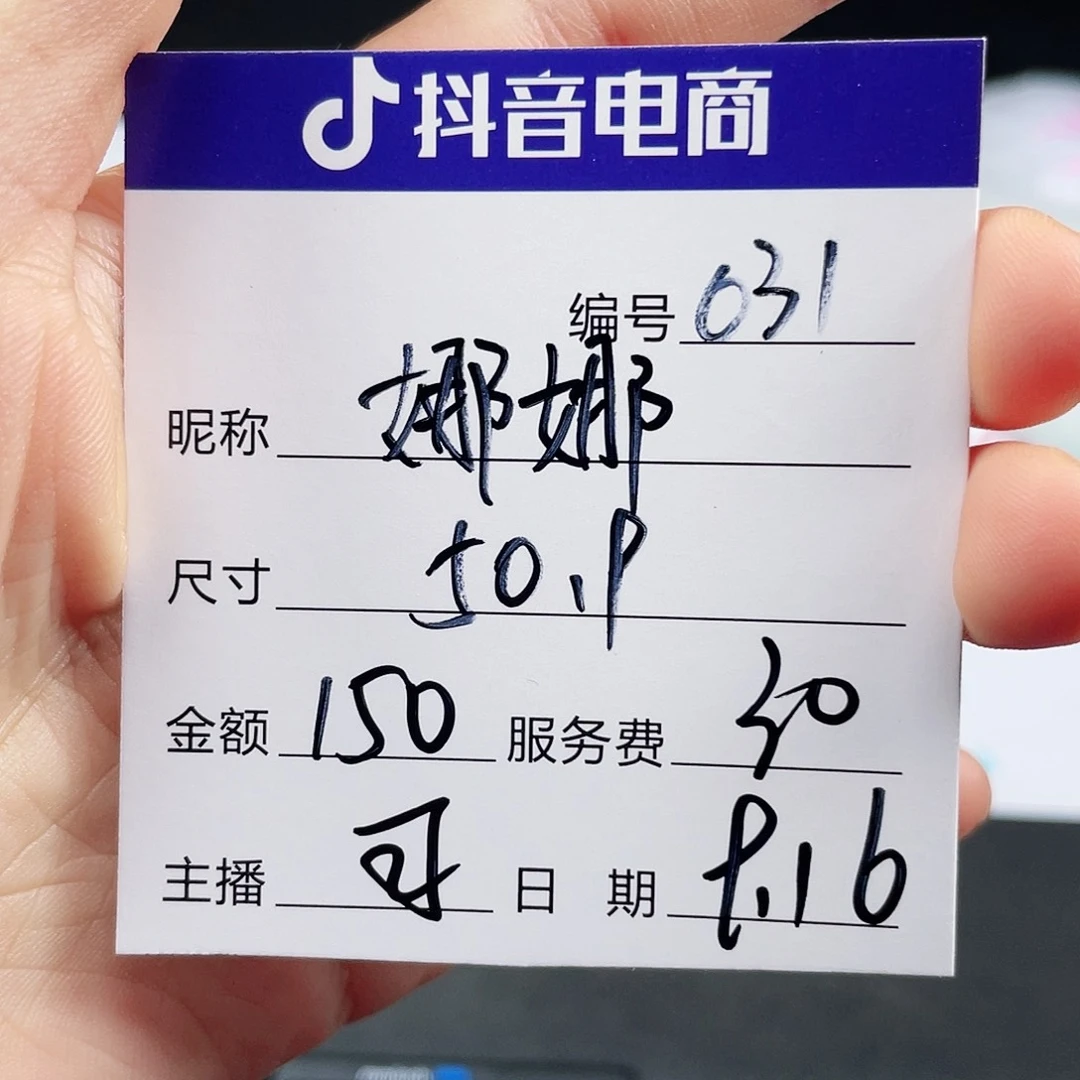 抖音电商
编号 031
昵称 娜娜
尺寸 50.9
金额 150 服务费 30
主播 可
日期 9.16